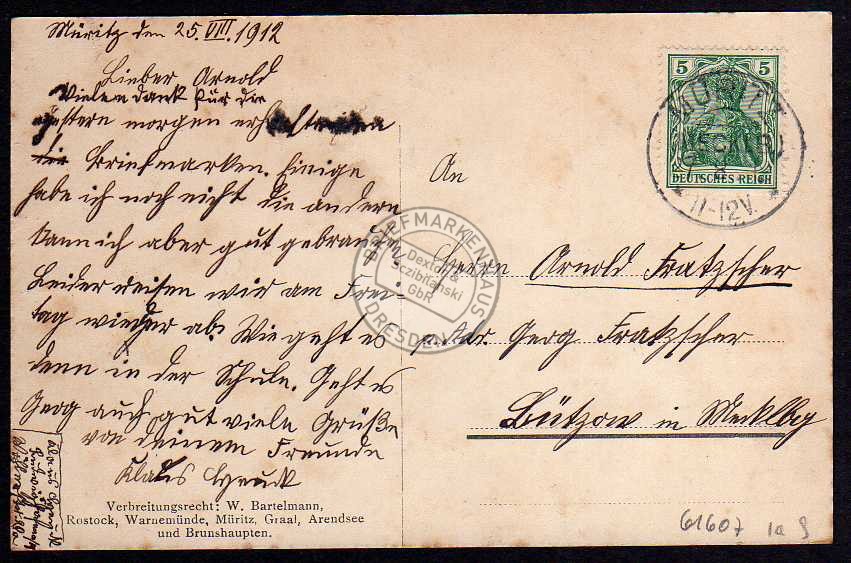 Müritz den 25.VIII.1912
Lieber Arnold
Vielen dank für die
gestern morgen erhaltenen
die Briefmarken. Einige
habe ich noch nicht die andern
kann ich aber gut gebrauchen
Leider reisen wir am Frei-
tag wieder ab. Wie geht es
denn in der Schule. Geht es
Georg auch gut viele Grüße
von deinem Freunde
Klaus
Verbreitungsrecht: W. Bartelmann,
Rostock, Warnemünde, Müritz, Graal, Arendsee
und Brunshaupten.
5 5
DEUTSCHES REICH
MÜRITZ
(MECKLB)
11-12V.
An
Herrn Arnold Fratzscher
p. Adr. Georg Fratzscher
Bützow in Mecklbg
BRIEFMARKENHAUS
Dextor &
Sczibilanski
GbR
DRESDEN
61607 1a 9